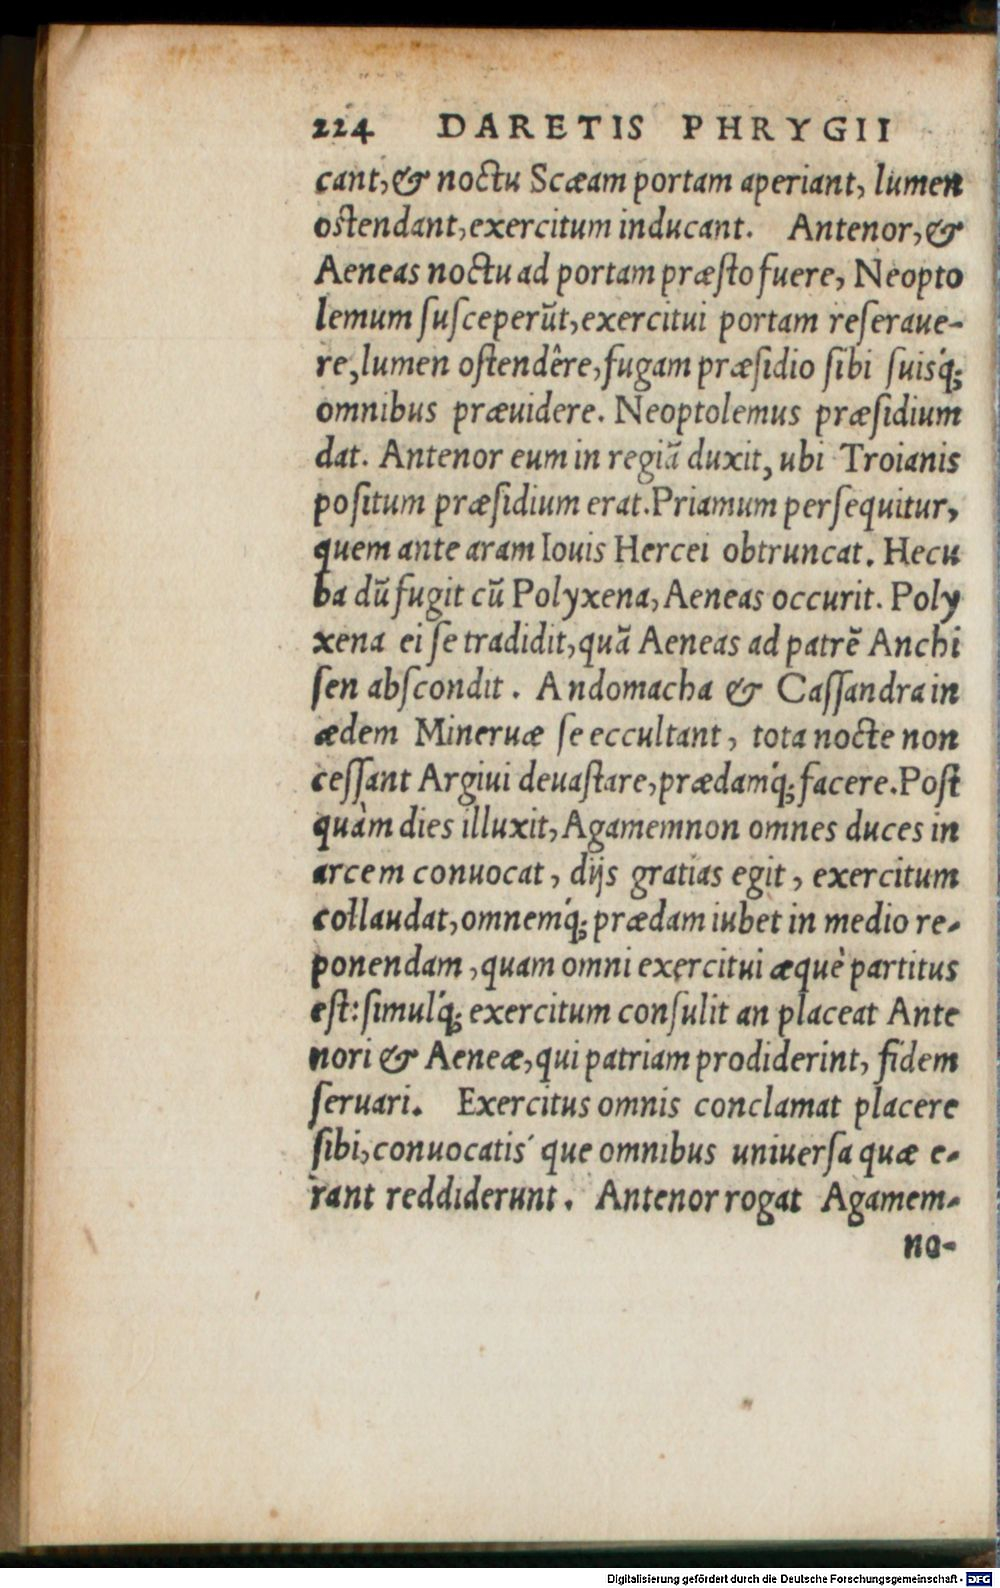 224 DARETIS PHRYGII
cant, & noctu Scæam portam aperiant, lumen
ostendant, exercitum inducant. Antenor, &
Aeneas noctu ad portam præsto fuere, Neopto
lemum susceperūt, exercitui portam reseraue-
re, lumen ostendêre, fugam præsidio sibi suisq́;
omnibus præuidere. Neoptolemus præsidium
dat. Antenor eum in regiā duxit, ubi Troianis
positum præsidium erat. Priamum persequitur,
quem ante aram Iouis Hercei obtruncat. Hecu
ba dū fugit cū Polyxena, Aeneas occurit. Poly
xena ei se tradidit, quā Aeneas ad patrē Anchi
sen abscondit. Andomacha & Cassandra in
ædem Mineruæ se eccultant, tota nocte non
cessant Argiui deuastare, prædamq́; facere. Post
quàm dies illuxit, Agamemnon omnes duces in
arcem conuocat, dijs gratias egit, exercitum
collaudat, omnemq́; prædam iubet in medio re-
ponendam, quam omni exercitui æquè partitus
est: simulq́; exercitum consulit an placeat Ante
nori & Aeneæ, qui patriam prodiderint, fidem
seruari. Exercitus omnis conclamat placere
sibi, conuocatis´ que omnibus uniuersa quæ e-
rant reddiderunt. Antenor rogat Agamem-
no-
Digitalisierung gefördert durch die Deutsche Forschungsgemeinschaft - DFG